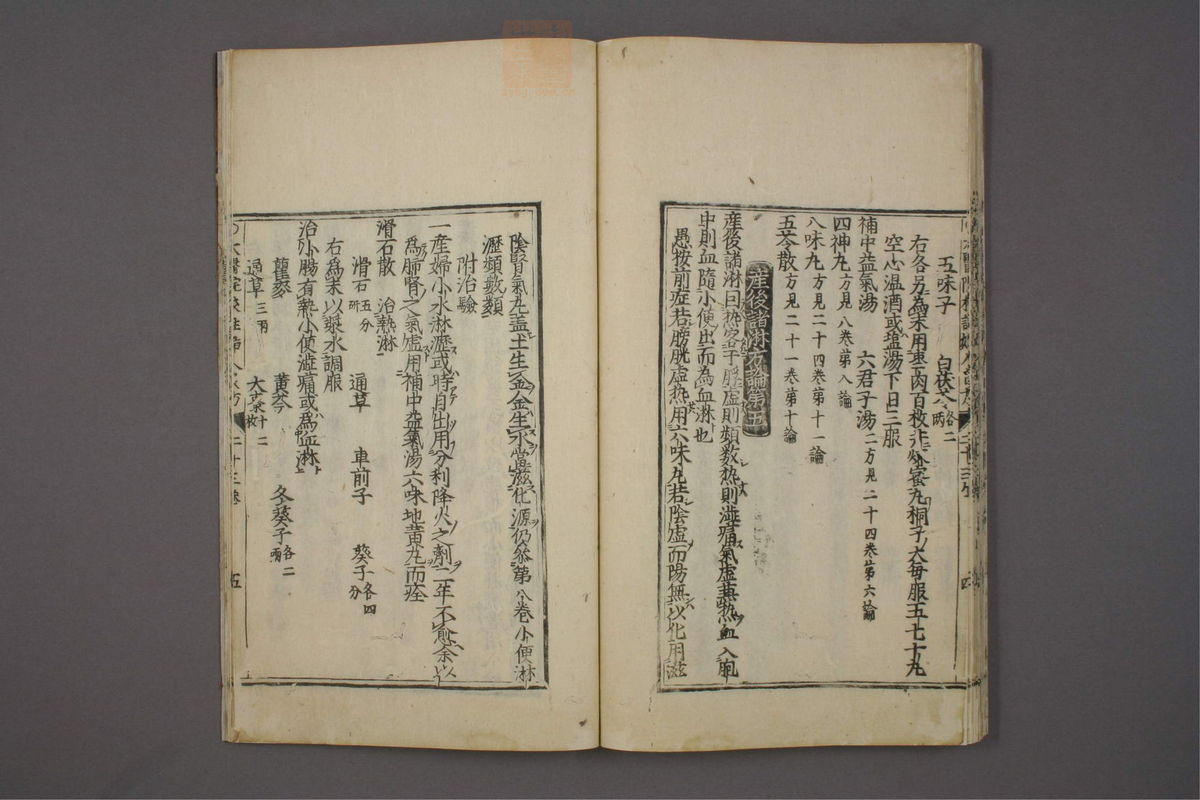 五味子 白茯苓各二兩
右各另為末用棗肉百枚 蜜丸桐子大每服五七十丸
空心温酒或塩湯下日三服
補中益氣湯 六君子湯二方見二十四卷第六論
四神丸方見八卷第八論
八味丸方見二十四卷第十一論
五苓散方見二十一卷第十論
産後諸淋方論第五
産後諸淋曰热客于脬虚則頻数热則澁痛氣虚蒹热血入胞
中則血隨小便出而為血淋也
愚按前症若膀胱虚热用六味丸若陰虚而陽無以化用滋
陰腎氣丸盖土生金金生水當滋化源仍叅第八卷小便淋
瀝頻數類
附治驗
一産婦小水淋瀝或時自出用分利降火之劑二年不愈余以
為肺腎之氣虚用補中益氣湯六味地黄丸而痊
滑石散 治熱淋
滑石五分研 通草 車前子 葵子各四分
右為末以漿水調服
治小腸有熱小便澁痛或為血淋
瞿麥 黄芩 冬葵子各二兩
通草三兩 大棗十二枚
二十三卷 五